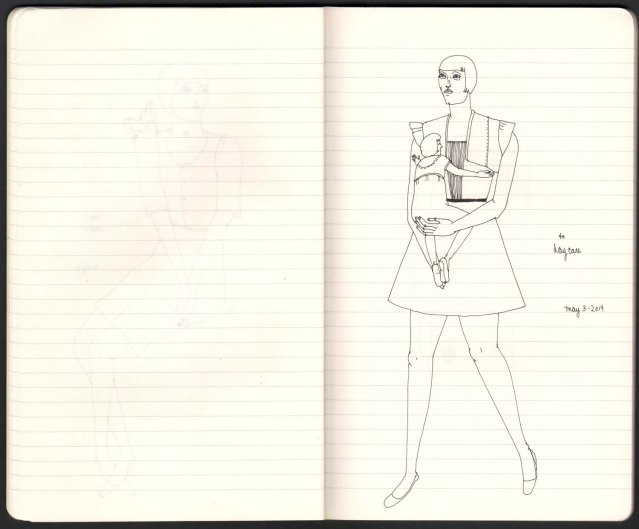 to
day care
may 3 - 2014